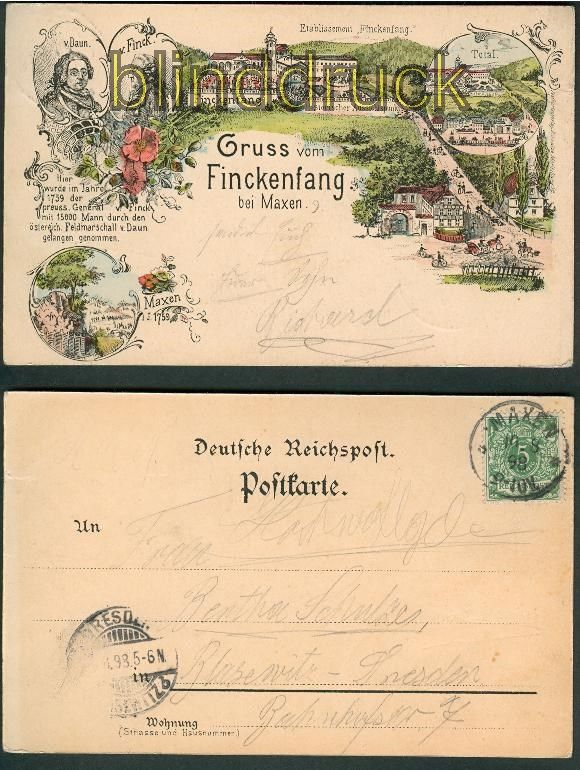 Etablissement „Finckenfang."
v. Daun.
v. Finck
blinddruck
Total.
Finckenfang
Gruss vom
Finckenfang
bei Maxen.
Hier
wurde im Jahre
1759 der
preuss. General Finck
mit 15000 Mann durch den
östereich. Feldmarschall v. Daun
gefangen genommen.
sendet Euch
Euer Sohn
Maxen
i. J. 1759.
Deutsche Reichspost.
Postkarte.
MAXEN
98
5
An
Frau
Bertha Schulze,
DRESDEN
98.5-6N.
in
Blasewitz-Dresden
Bahnhofstr 7
Wohnung
(Strasse und Hausnummer.)